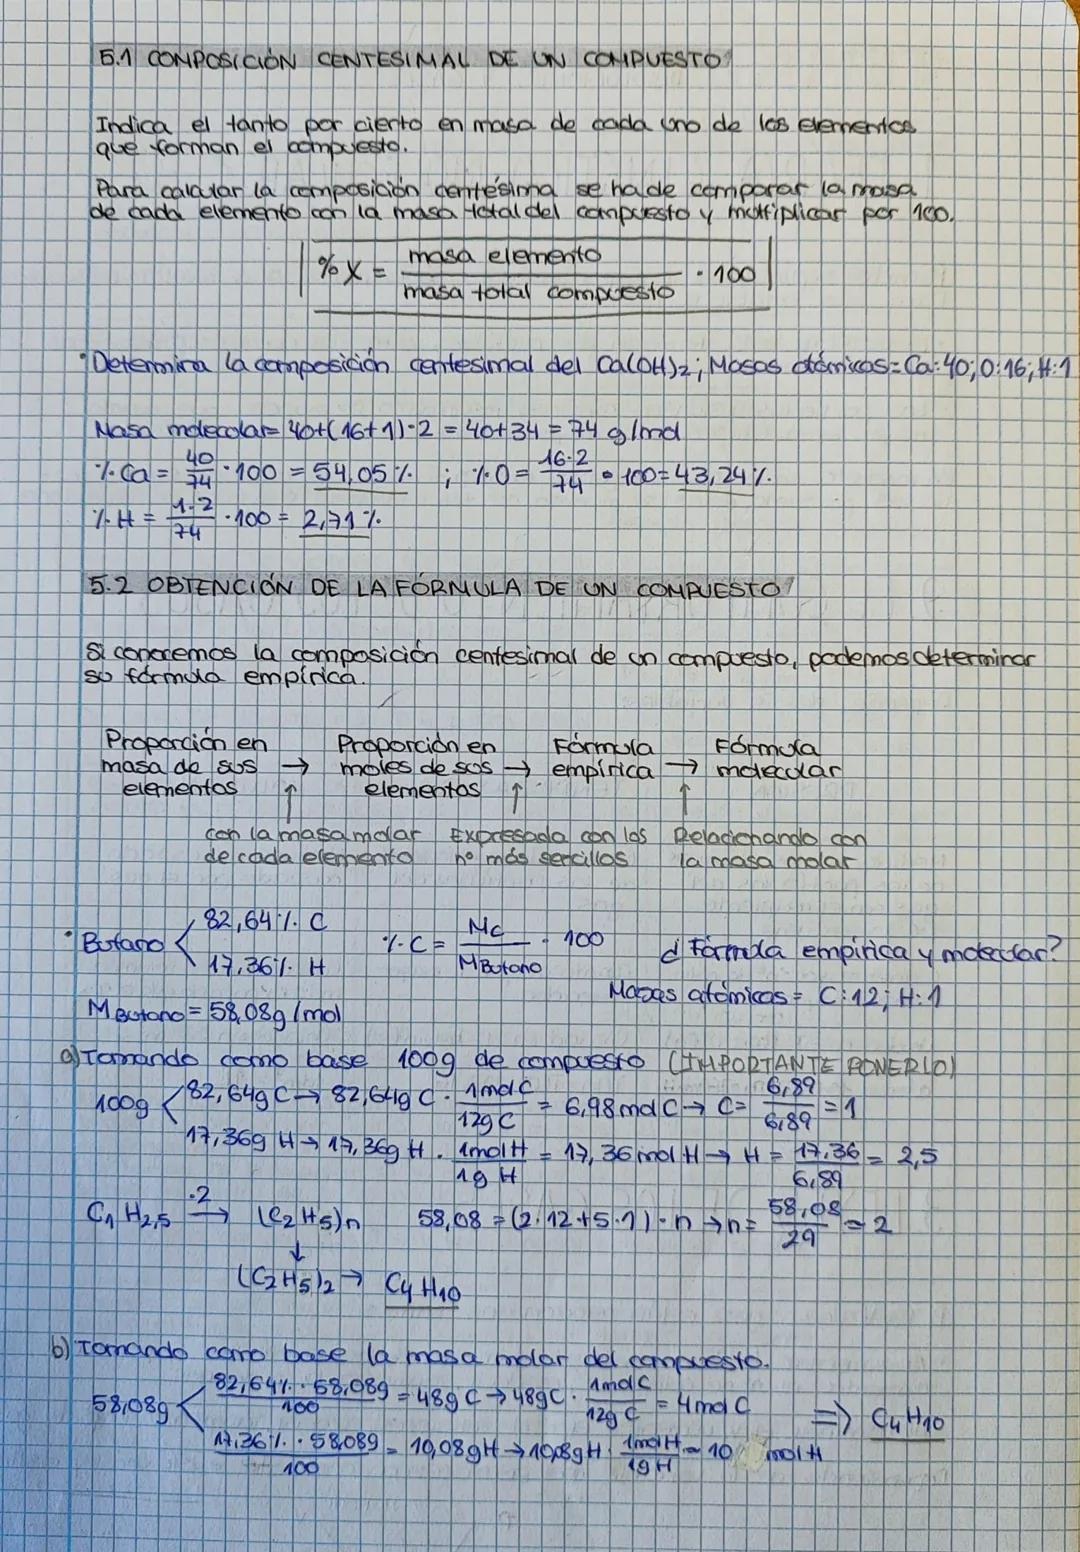 5.1 COMPOSICIÓN CENTESIMAL DE UN COMPUESTO
Indica el tanto por ciento en masa de cada uno de los elementos
que forman el compuesto.
Para calcular la composición centésima se ha de comparar la masa
de cada elemento con la masa total del compuesto y multiplicar por 100.
%X = masa elemento / masa total compuesto · 100
· Determina la composición centesimal del Ca(OH)2; Masas atómicas= Ca:40; O:16; H:1
Masa molecular= 40+(16+1)·2 = 40+34 = 74 g/mol
% Ca = 40/74 · 100 = 54,05% ; % O = 16·2/74 · 100 = 43,24%.
% H = 1·2/74 · 100 = 2,71%.
5.2 OBTENCIÓN DE LA FÓRMULA DE UN COMPUESTO
Si conocemos la composición centesimal de un compuesto, podemos determinar
su fórmula empírica.
Proporción en masa de sus elementos → Proporción en moles de sus elementos → Fórmula empírica → Fórmula molecular
↑ ↑ ↑
con la masa molar de cada elemento Expresada con los nº más sencillos Relacionando con la masa molar
· Butano < 82,64% C 17,36% H % C = Mc / MButano · 100 ¿Fórmula empírica y molecular?
Masas atómicas = C:12; H:1
M Butano = 58,08g/mol
a) Tomando como base 100g de compuesto (IMPORTANTE PONERLO)
100g < 82,64g C → 82,64g C · 1mol C / 12g C = 6,98 mol C → C = 6,89/6,89 = 1
17,36g H → 17,36g H · 1mol H / 1g H = 17,36 mol H → H = 17,36/6,89 = 2,5
C1 H2,5 ·2→ (C2H5)n 58,08 = (2·12+5·1)·n → n = 58,08/29 = 2
↓
(C2H5)2 → C4H10
b) Tomando como base la masa molar del compuesto.
58,08g < 82,64% · 58,08g / 100 = 48g C → 48g C · 1mol C / 12g C = 4mol C ⇒ C4H10
17,36% · 58,08g / 100 = 10,08g H → 10,8g H · 1mol H / 1g H = 10 mol H